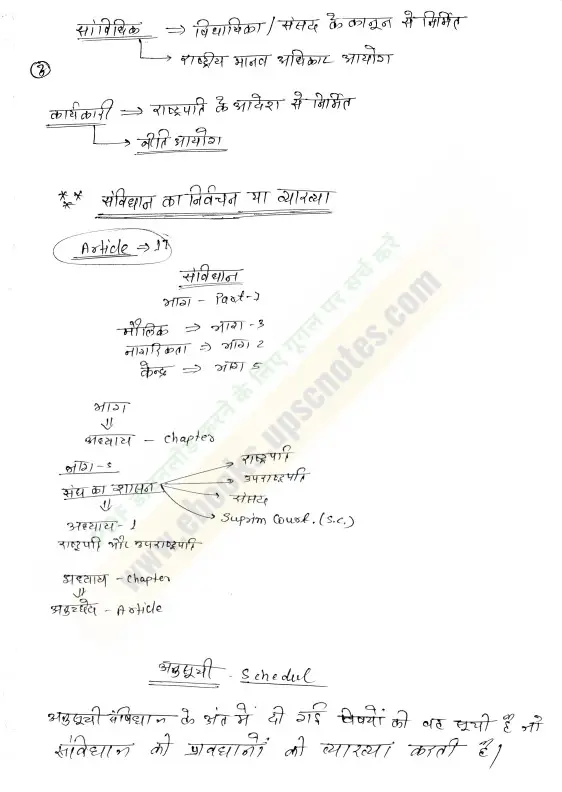 सांविधिक ⇒ विधायिका / संसद के कानून से निर्मित
→ राष्ट्रीय मानव अधिकार आयोग
कार्यकारी ⇒ राष्ट्रपति के आदेश से निर्मित
→ नीति आयोग
** ** संविधान का निर्वचन या व्याख्या
Article ⇒
संविधान
भाग - Part-1
मौलिक ⇒ भाग - 3
नागरिकता ⇒ भाग 2
केन्द्र ⇒ भाग 5
भाग
⇓
अध्याय - Chapter
भाग-5
संघ का शासन
→ राष्ट्रपति
→ उपराष्ट्रपति
→ संसद
→ Suprim Court. (S.C.)
⇓
अध्याय - 1
राष्ट्रपति और उपराष्ट्रपति
अध्याय - Chapter
⇓
अनुच्छेद - Article
अनुसूची - Schedul
अनुसूची संविधान के अंत में दी गई विषयों की वह सूची है जो
संविधान को प्रावधानों को व्याख्या करती है।
www.ebooks.upscnotes.com